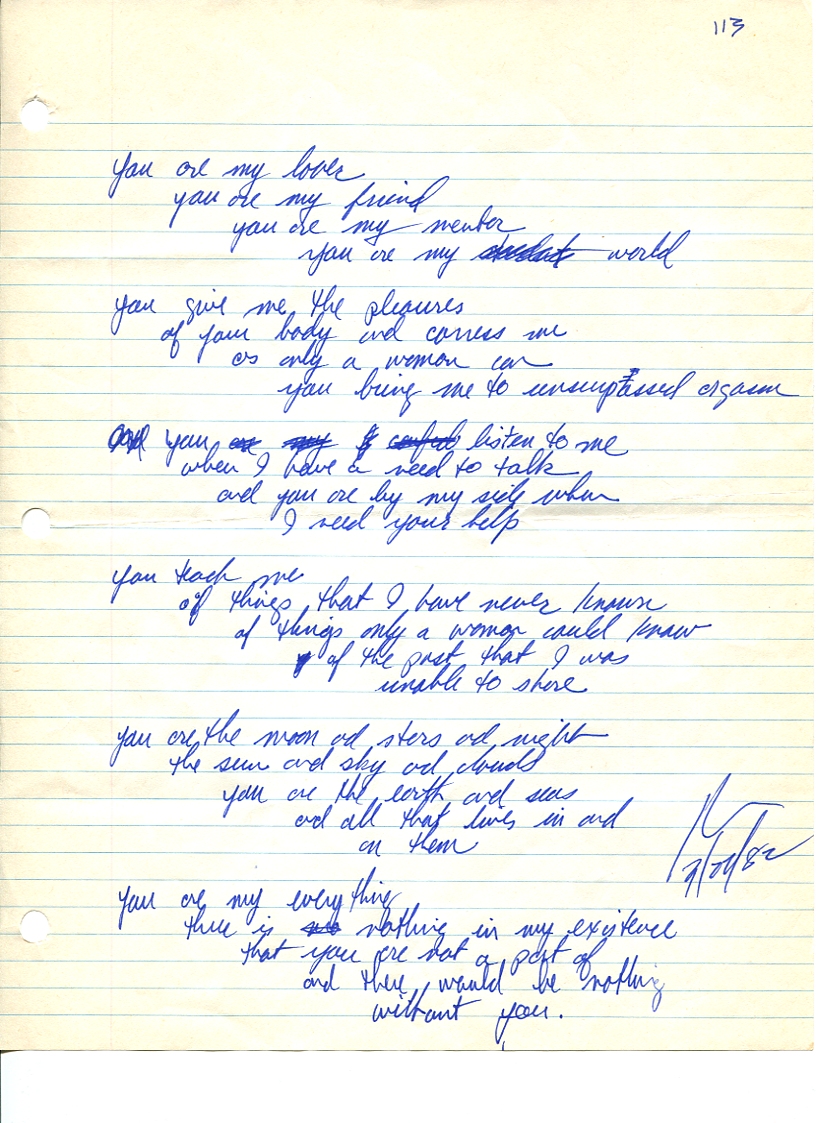 113
you are my lover
you are my friend
you are my mentor
you are my world
you give me the pleasures
of your body and carress me
as only a woman can
you bring me to unsurpassed orgasm
you listen to me
when I have a need to talk
and you are by my side when
I need your help
you teach me
of things that I have never known
of things only a woman could know
of the past that I was
unable to share
you are the moon and stars and night
the sun and sky and clouds
you are the earth and seas
and all that lives in and
on them
you are my everything
there is nothing in my existence
that you are not a part of
and there would be nothing
without you.